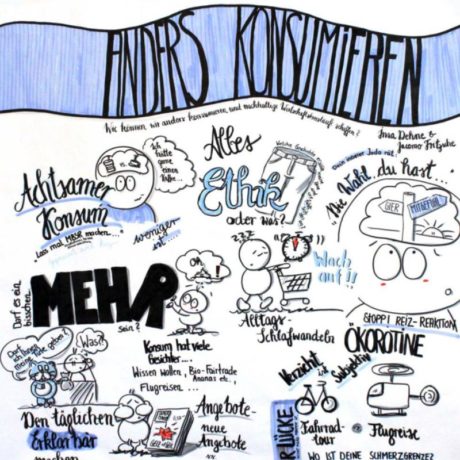 ANDERS KONSUMIEREN
Wie können wir anders konsumieren und nachhaltige Wirtschaftskreisläufe schaffen?
Ina Dehne &
Alles
Ethik
oder was?
Ich hätte gerne einen Kaffee...
Achtsamer
Konsum
weniger
ist...
Dein innerer Jedi rät:
Die Wahl, du hast...
GIER
MITGEFÜHL
Wach
auf!!
Darf es ein bisschen
MEHR
sein?
Oh,
Alltags-
Schlafwandeln
STOPP! REIZ-REAKTION
ÖKOROTINE
Konsum hat viele
Gesichter...
Wissen wollen, Bio-Fairtrade
Ananas etc.,
Flugreisen ...
Verzicht
ist
subjektiv
Was?!
Den täglichen
Erklärbär
machen
Angebote-
neue
Angebote
R LÜCKE
Fahrrad-
tour
Flugreise
WO IST DEINE SCHMERZGRENZE?